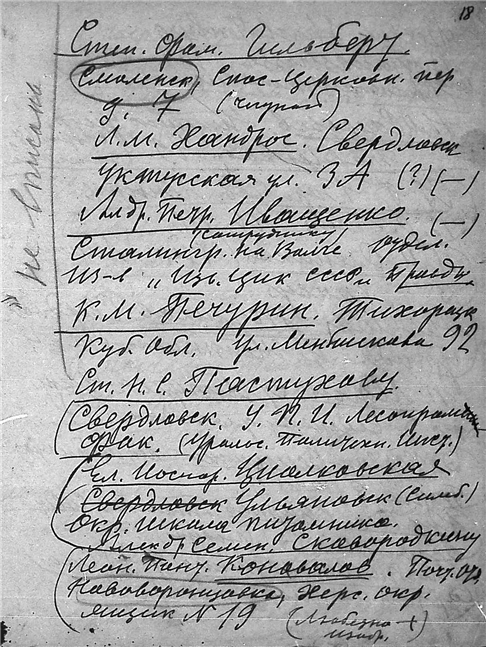 18
Степ. Фом. Гильберу.
Смоленск, Спас-Церковн. пер
д. 7 (глухой)
Л.М. Хандрос. Свердловск
Уктусская ул. 3А (?) (—)
Алдр. Петр. Иващенко. (—)
(сотруднику)
Сталингр. на Волге отдел.
из-в „Изв. ЦИК СССР и Правды
К.М. Печурин. Тихорецк
Куб. Обл. ул. Меньшикова 92
Ст. Н. С. Пастухову.
Свердловск. У.П.И. Лесопром
фак. (Уральс. Политехн. Инст.)
Ел. Иосиф. Циолковская
Свердловск Ульяновск (Симб.)
Окр. школа питомника.
Алекдр Семен. Сковородкину
Леон. Пант. Коновалов. Почт. отд.
Нововоронцовка, Херс. окр.
ящик N 19
не вписана